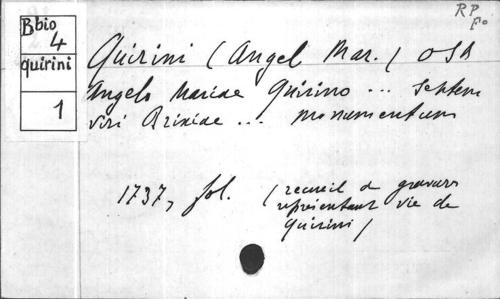 RP
Fo
Bbio
4
quirini
1
Quirini (Angel Mar.) OSA
Angelo Mariae Quirino ... Septem
viri Brixiae ... monumentum
1737, fol. (recueil de gravures
représentant vie de
Quirini)